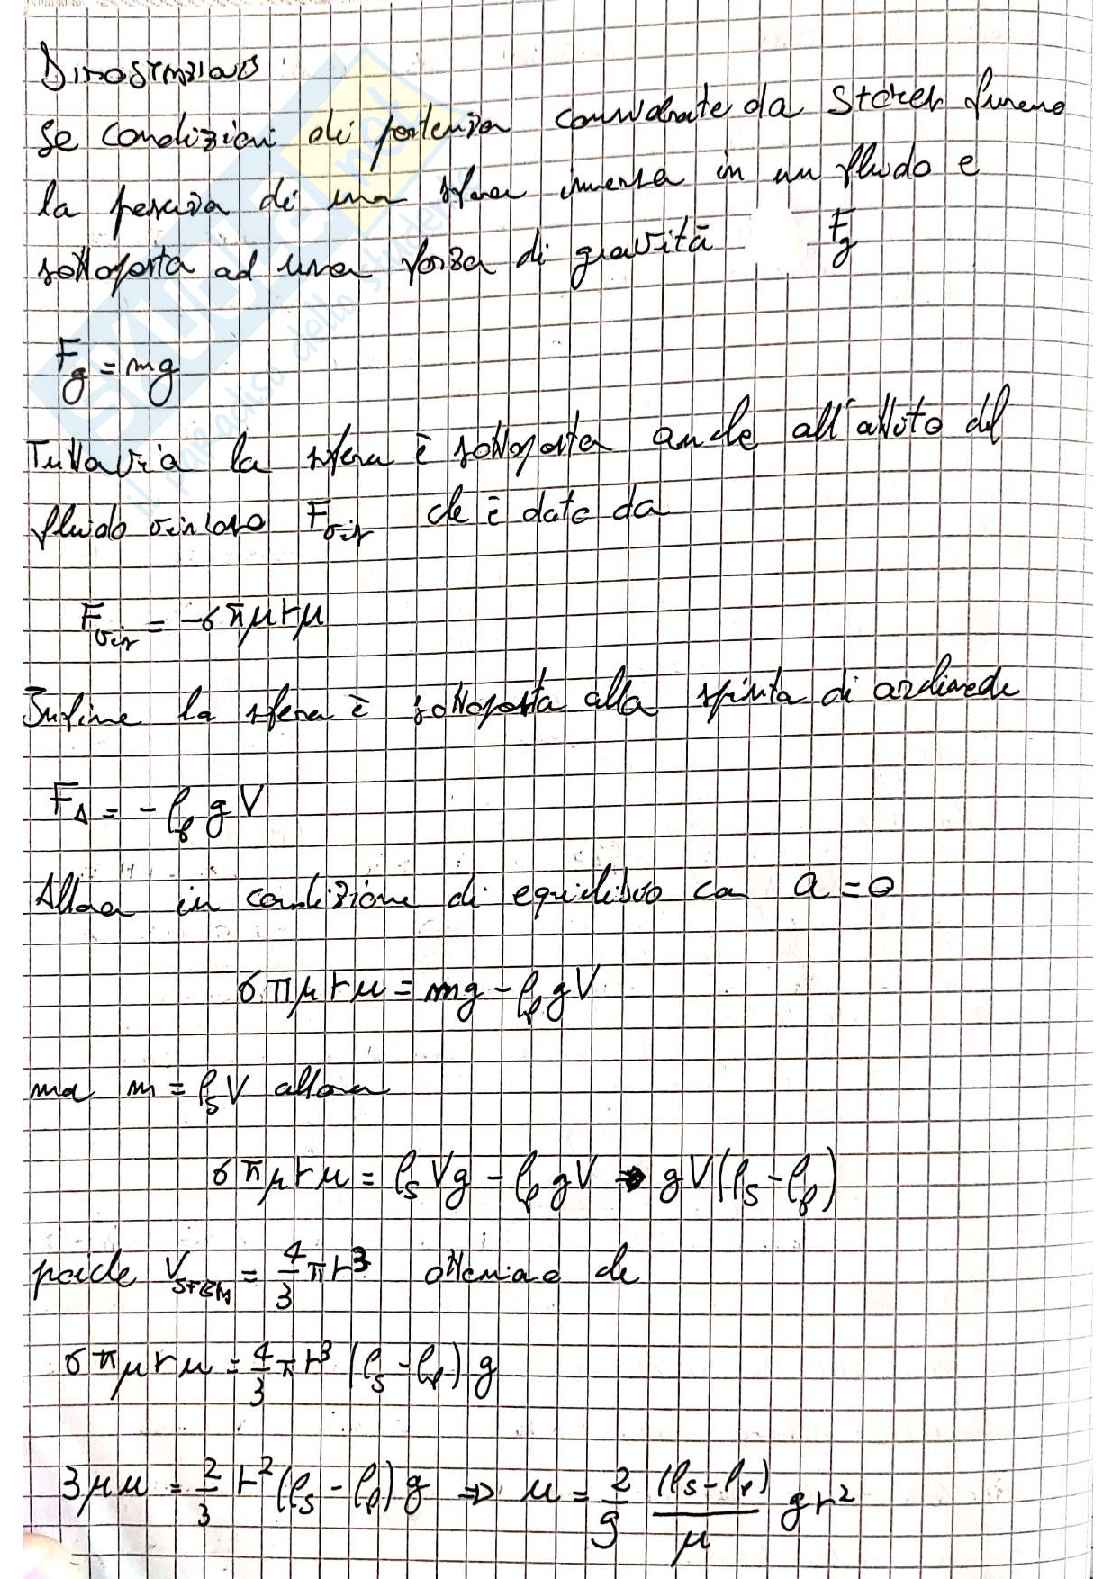 Dimostrazione
Se condizioni di partenza considerate da Stokes furono
la presenza di una sfera immersa in un fluido e
sottoposta ad una forza di gravità Fg
Fg = mg
Tuttavia la sfera è sottoposta anche all'attrito del
fluido viscoso Fvis che è dato da
Fvis = -6πμru
Infine la sfera è sottoposta alla spinta di archimede
FA = -ρf g V
Allora in condizione di equilibrio con a = 0
6πμru = mg - ρf g V
ma m = ρs V allora
6πμru = ρs Vg - ρf g V ⇒ gV(ρs - ρf)
poiche VSFERA = 4/3 πr³ otteniamo che
6πμru = 4/3 πr³ (ρs - ρf) g
3μu = 2/3 r² (ρs - ρf) g ⇒ u = 2/9 (ρs - ρf)/μ gr²